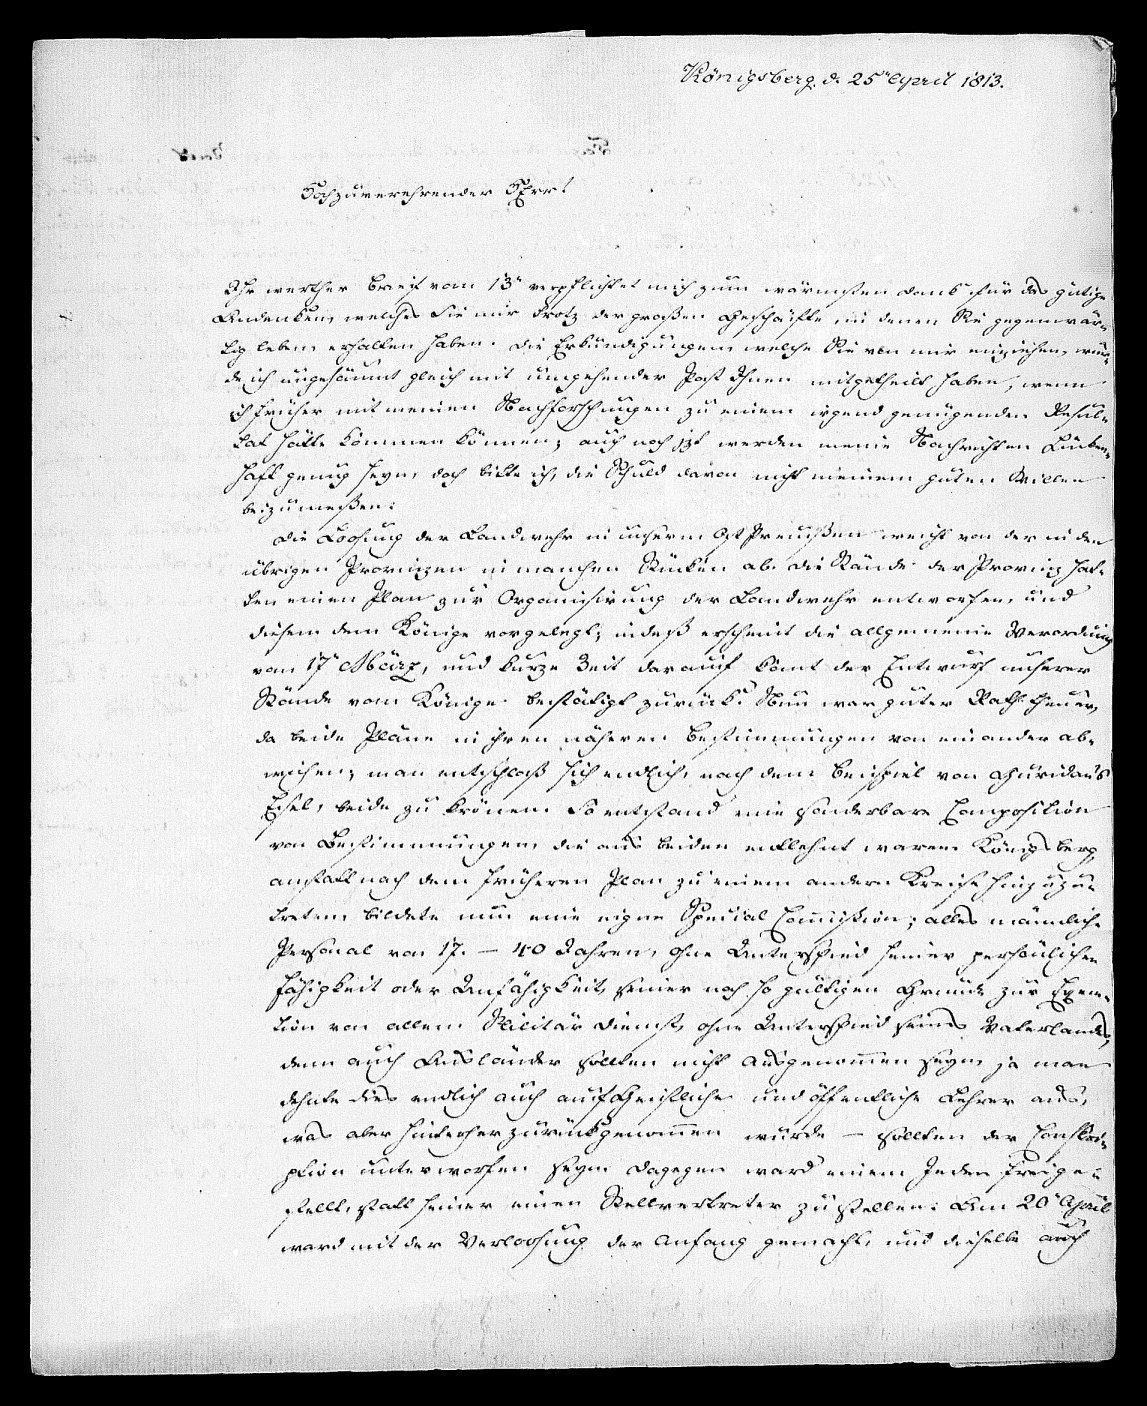 Königsberg. d. 25n April 1813.
Hochzuverehrender Herr!
Ihr werther Brief vom 13n verpflichtet mich zum wärmsten Dank für das gütige
Andenken, welches Sie mir trotz der großen Geschäfte, in denen Sie gegenwär-
tig leben, erhalten haben. Die Erkundigungen, welche Sie von mir einziehen, wür-
de ich ungesäumt gleich mit umgehender Post Ihnen mitgetheilt haben, wenn
ich früher mit meinen Nachforschungen zu einem irgend genügenden Resul-
tat hätte kommen können; auch noch jzt werden meine Nachrichten lücken-
haft genug seyn, doch bitte ich, die Schuld davon nicht meinem guten Willen
beizumeßen.
Die Loosung der Landwehr in unserm Ost Preußen weicht von der in den
übrigen Provinzen in manchen Stücken ab. Die Stände der Provinz hat-
ten einen Plan zur Organisirung der Landwehr entworfen, und
diesen dem Könige vorgelegt; indeß erscheint die allgemeine Verordnung
vom 17n März, und kurze Zeit darauf kömt der Entwurf unserer
Stände vom Könige bestätigt zurück. Nun war guter Rath theuer,
da beide Pläne in ihren näheren Bestimmungen von einander ab-
wichen; man entschloß sich endlich, nach dem Beispiel von Buridans
Esel, beide zu krönen. So entstand eine sonderbare Composition
von Bestimmungen, die aus beiden entlehnt waren. Königsberg,
anstatt nach dem früheren Plan zu einem andern Kreise hinzuzu-
treten, bildete nun eine eigne Special Commißion; alles männliche
Personal von 17. – 40 Jahren, ohne Unterschied seiner persönlichen
Fähigkeit oder Unfähigkeit, seiner noch so gültigen Gründe zur Exem-
tion von allem Militär dienst, ohne Unterschied seines Vaterlandes,
denn auch Ausländer sollten nicht ausgenommen seyn, ja man
dehnte dies endlich auch auf Geistliche und öffentliche Lehrer aus,
was aber hinterher zurückgenommen wurde – sollten der Conskri-
ption unterworfen seyn. Dagegen ward einem Jeden freige-
stellt, statt seiner einen Stellvertreter zu stellen. Am 20n April
ward mit der Verloosung der Anfang gemacht, und dieselbe auch